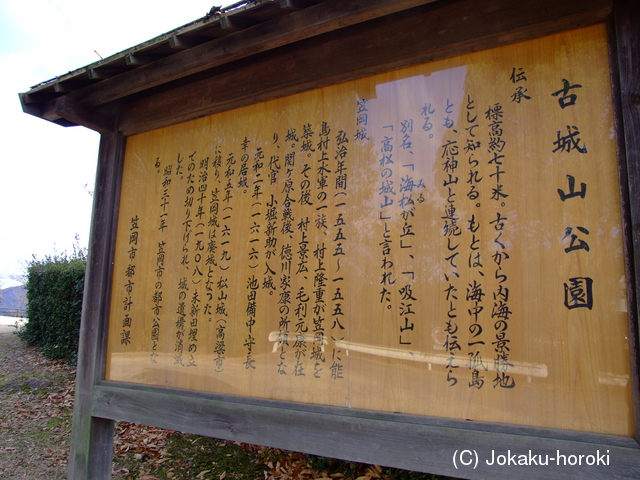 古城山公園
伝承
標高約七十米。古くから内海の景勝地
として知られる。もとは、海中の一孤島
とも、応神山と連鎖していたとも伝えら
れる。
別名、「海松が丘」、「吸江山」、
みる
「高松の城山」と言われた。
笠岡城
弘治年間(一五五五～一五五八)に能
島村上水軍の一族、村上隆重が笠岡城を
築城。その後、村上景広、毛利元康が在
城。関ヶ原合戦後、徳川家康の所領とな
り、代官 小堀新助が入城。
元和二年(一六一六)池田備中守長
幸の居城。
元和五年(一六一九)松山城(高梁市)
に移り、笠岡城は廃城となった。
明治四十年(一九〇八)未新田埋の立
てのため切り下げられ、城の遺構が消滅
した。
昭和三十一年 笠岡市の都市公園とな
る。
笠岡市都市計画課
(C) Jokaku-horoki